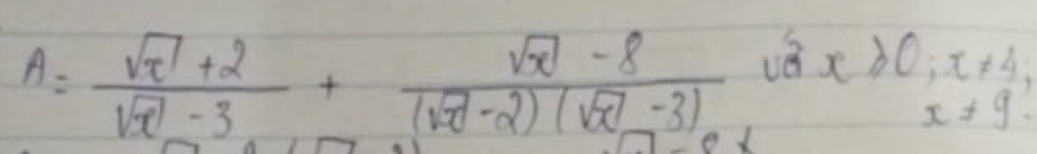 A = \frac{\sqrt{x} + 2}{\sqrt{x} - 3} + \frac{\sqrt{x} - 8}{(\sqrt{x} - 2)(\sqrt{x} - 3)} với x ≥ 0; x ≠ 4;
x ≠ 9.